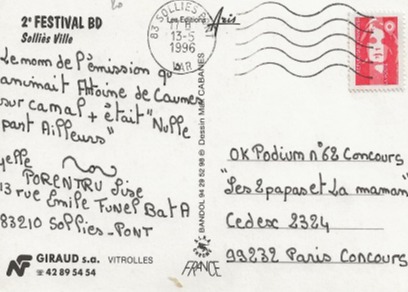 2e FESTIVAL BD
Solliès Ville
Le nom de l'émission qu
animait Antoine de Caunes
sur canal + était "Nulle
part Ailleurs"
PORENTRU Lise
13 rue Emile
Bat A
83210 Sollies-PONT
NF GIRAUD s.a. VITROLLES
☎ 42 89 54 54
Les Editions Aris
83 SOLLIES
13-5
1996
VAR
BANDOL 94 29 52 98 © Dessin CABANES
FRANCE
OK Podium n°68 Concours
"Les 2 papas et La maman"
Cedex 2324
99232 Paris Concours